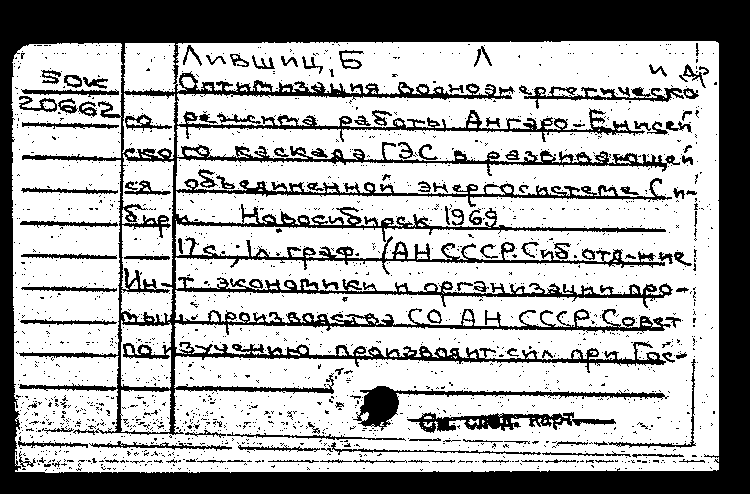 Лившиц, Б Л
и др.
50к Оптимизация водноэнергетическо
20662 го режима работы Ангаро-Енисей
ского каскада ГЭС в развивающей
ся объединенной энергосистеме Си-
бири. Новосибирск, 1969.
17с.; 1л. граф. (АН СССР. Сиб. отд-ние
Ин-т экономики и организации про-
мышл. производства СО АН СССР. Совет
по изучению производит. сил при Гос-
См. след. карт.